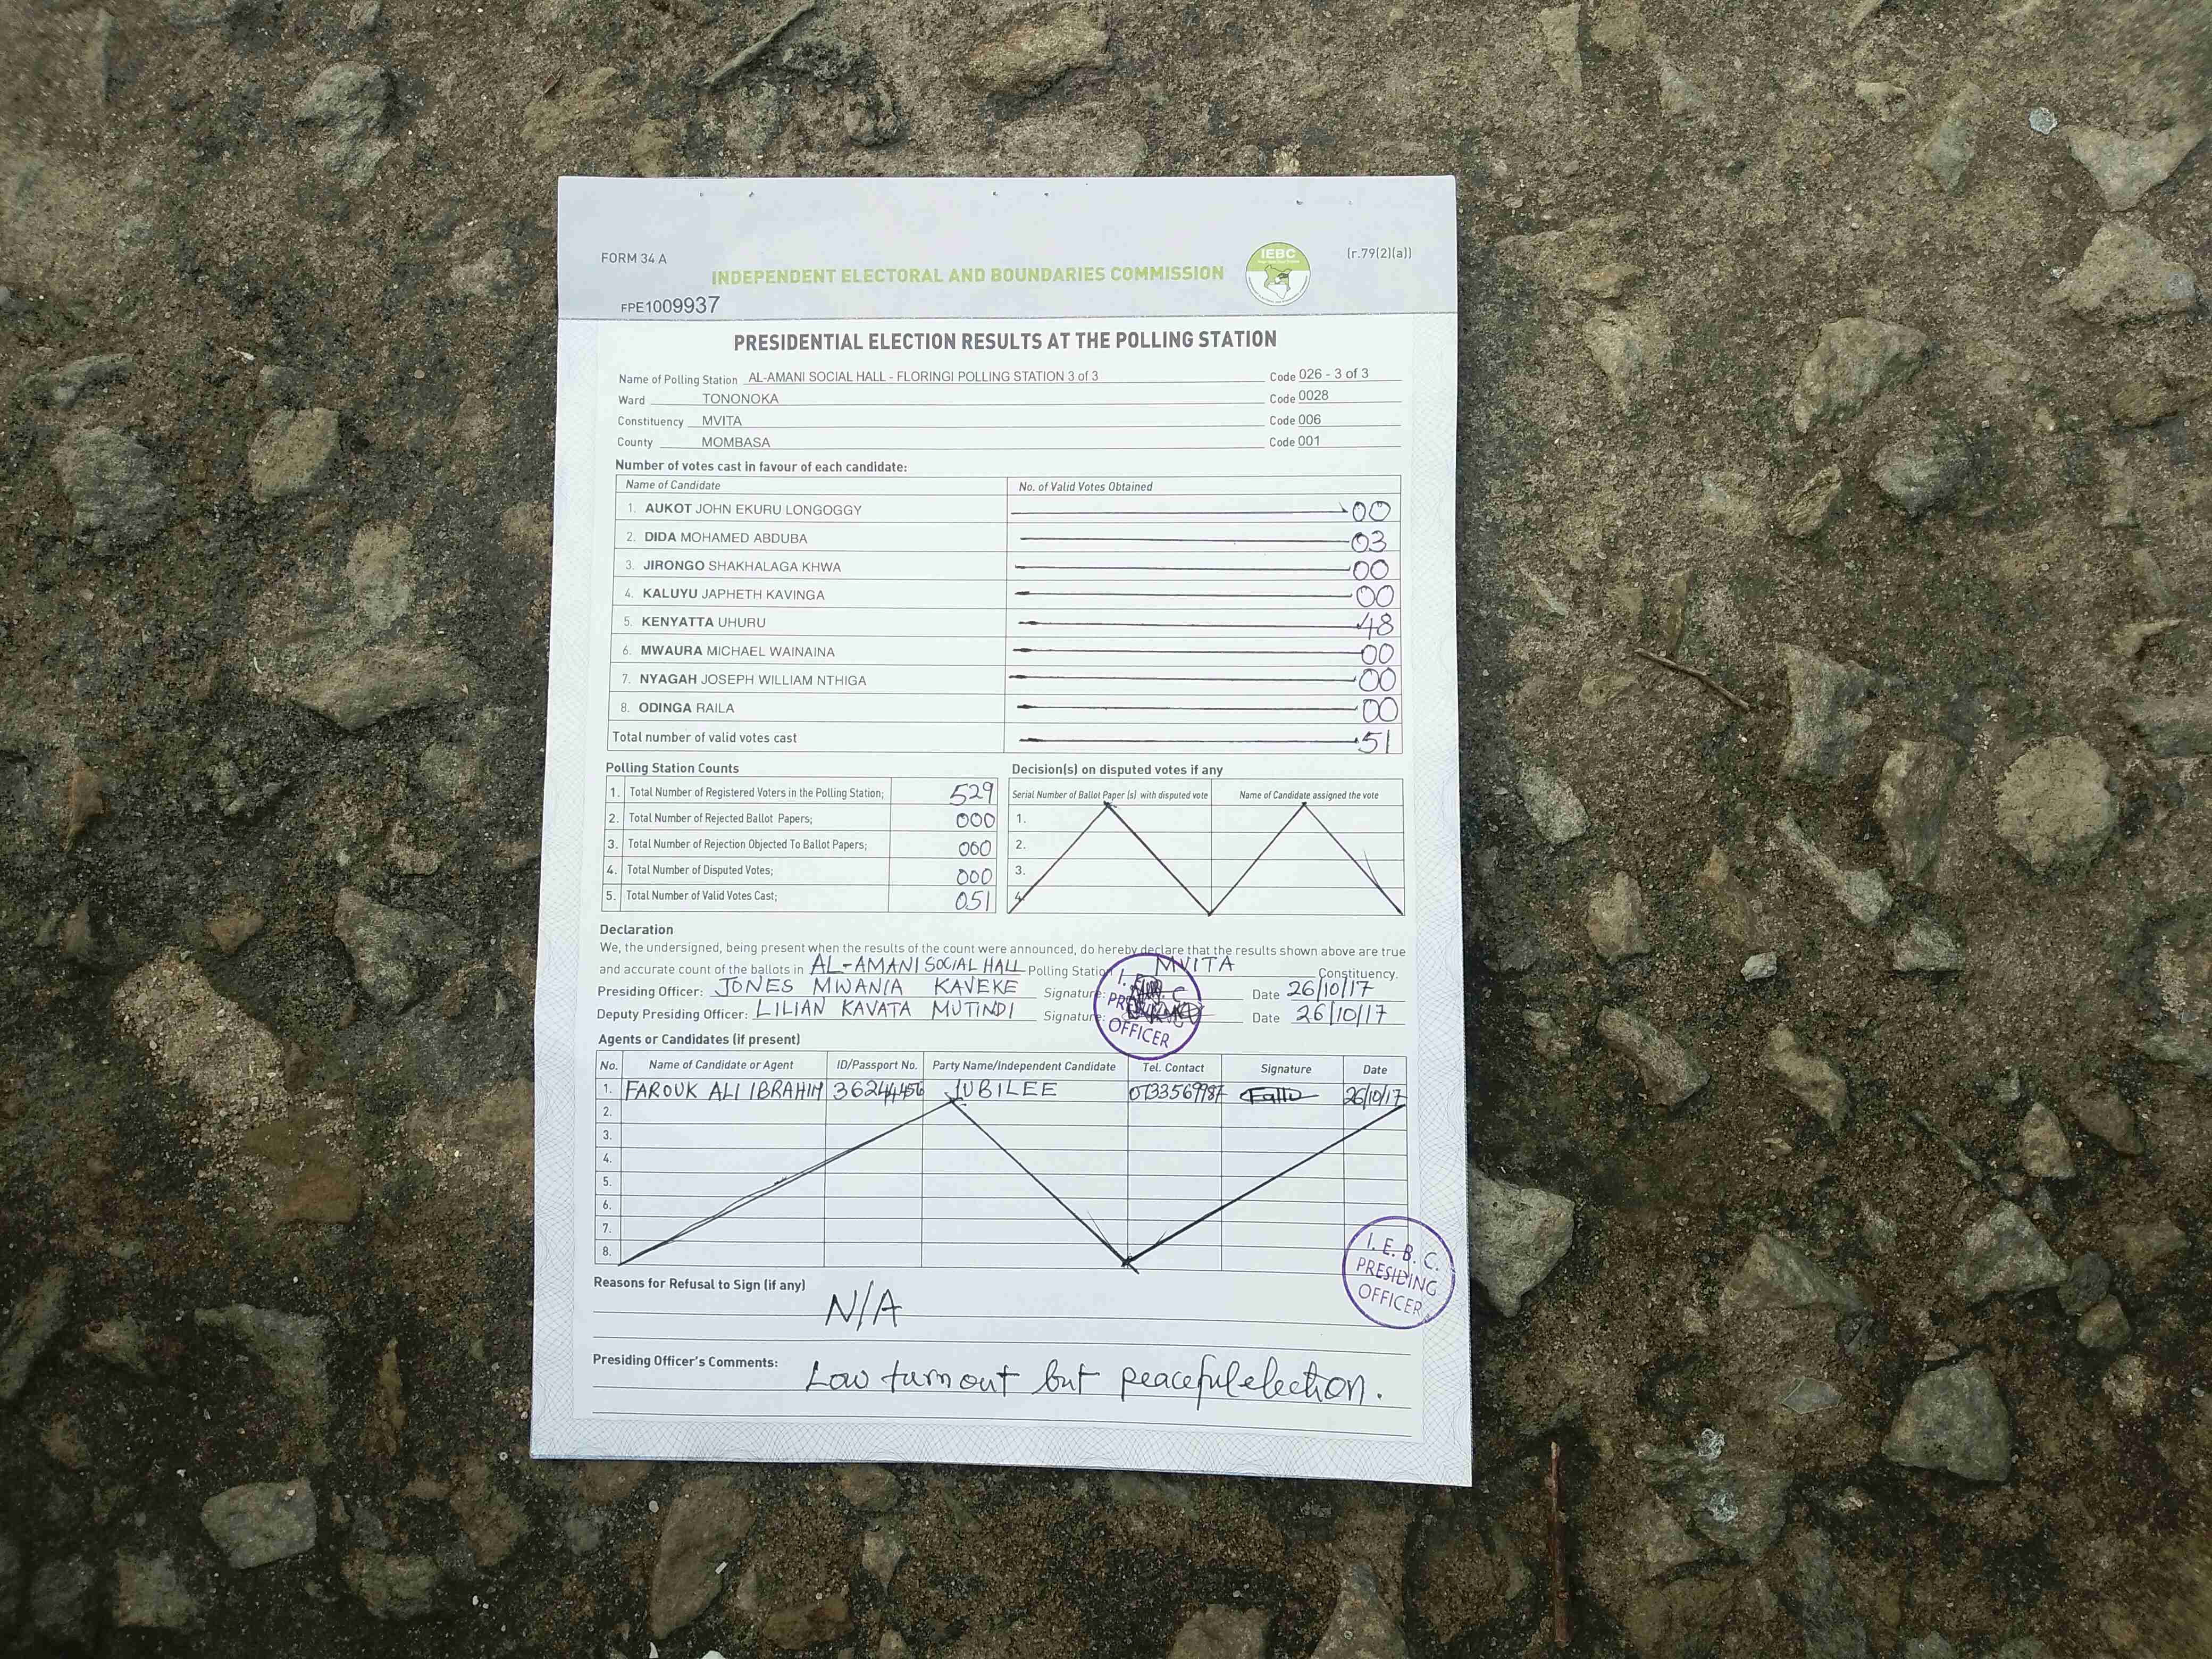 FORM 34 A
IEBC
(r.79(2)(a))
INDEPENDENT ELECTORAL AND BOUNDARIES COMMISSION
FPE1009937
PRESIDENTIAL ELECTION RESULTS AT THE POLLING STATION
Name of Polling Station AL-AMANI SOCIAL HALL - FLORINGI POLLING STATION 3 of 3 Code 026 - 3 of 3
Ward TONONOKA Code 0028
Constituency MVITA Code 006
County MOMBASA Code 001
Number of votes cast in favour of each candidate:
Name of Candidate No. of Valid Votes Obtained
1. AUKOT JOHN EKURU LONGOGGY 00
2. DIDA MOHAMED ABDUBA 03
3. JIRONGO SHAKHALAGA KHWA 00
4. KALUYU JAPHETH KAVINGA 00
5. KENYATTA UHURU 48
6. MWAURA MICHAEL WAINAINA 00
7. NYAGAH JOSEPH WILLIAM NTHIGA 00
8. ODINGA RAILA 00
Total number of valid votes cast 51
Polling Station Counts
1. Total Number of Registered Voters in the Polling Station; 529
2. Total Number of Rejected Ballot Papers; 000
3. Total Number of Rejection Objected To Ballot Papers; 000
4. Total Number of Disputed Votes; 000
5. Total Number of Valid Votes Cast; 051
Decision(s) on disputed votes if any
Serial Number of Ballot Paper (s) with disputed vote Name of Candidate assigned the vote
1.
2.
3.
4.
Declaration
We, the undersigned, being present when the results of the count were announced, do hereby declare that the results shown above are true
and accurate count of the ballots in AL-AMANI SOCIAL HALL Polling Station MVITA Constituency.
Presiding Officer: JONES MWANIA KAVEKE Signature: Date 26/10/17
Deputy Presiding Officer: LILIAN KAVATA MUTINDI Signature: Date 26/10/17
OFFICER
Agents or Candidates (if present)
No. Name of Candidate or Agent ID/Passport No. Party Name/Independent Candidate Tel. Contact Signature Date
1. FAROUK ALI IBRAHIM JUBILEE 0733569987 26/10/17
2.
3.
4.
5.
6.
7.
8.
I. E. B. C.
PRESIDING
OFFICER
Reasons for Refusal to Sign (if any)
N/A
Presiding Officer's Comments: Low turn out but peaceful election.